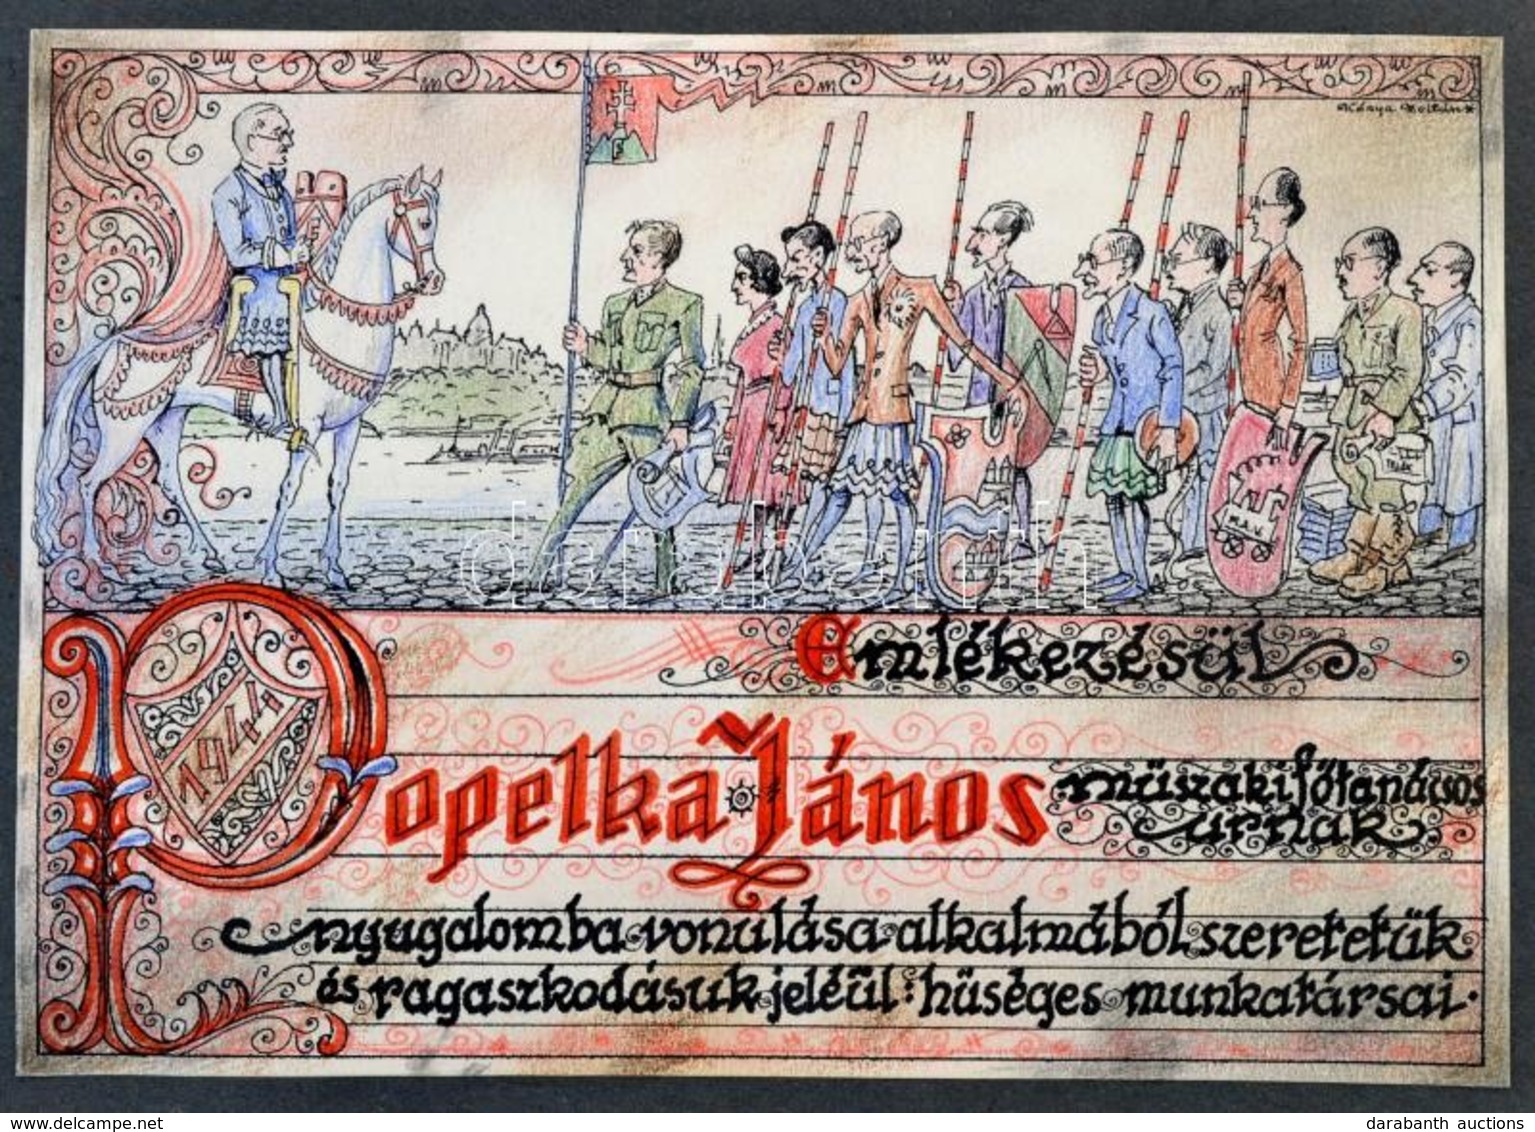 Kónya Zoltán
M.Á.V.
darabanth
Emlékezésül
1944
Popelka János műszaki főtanácsos
urnak
nyugalomba vonulása alkalmából szeretetük
és ragaszkodásuk jeléül: hűséges munkatársai.
delcampe.net
darabanth auctions